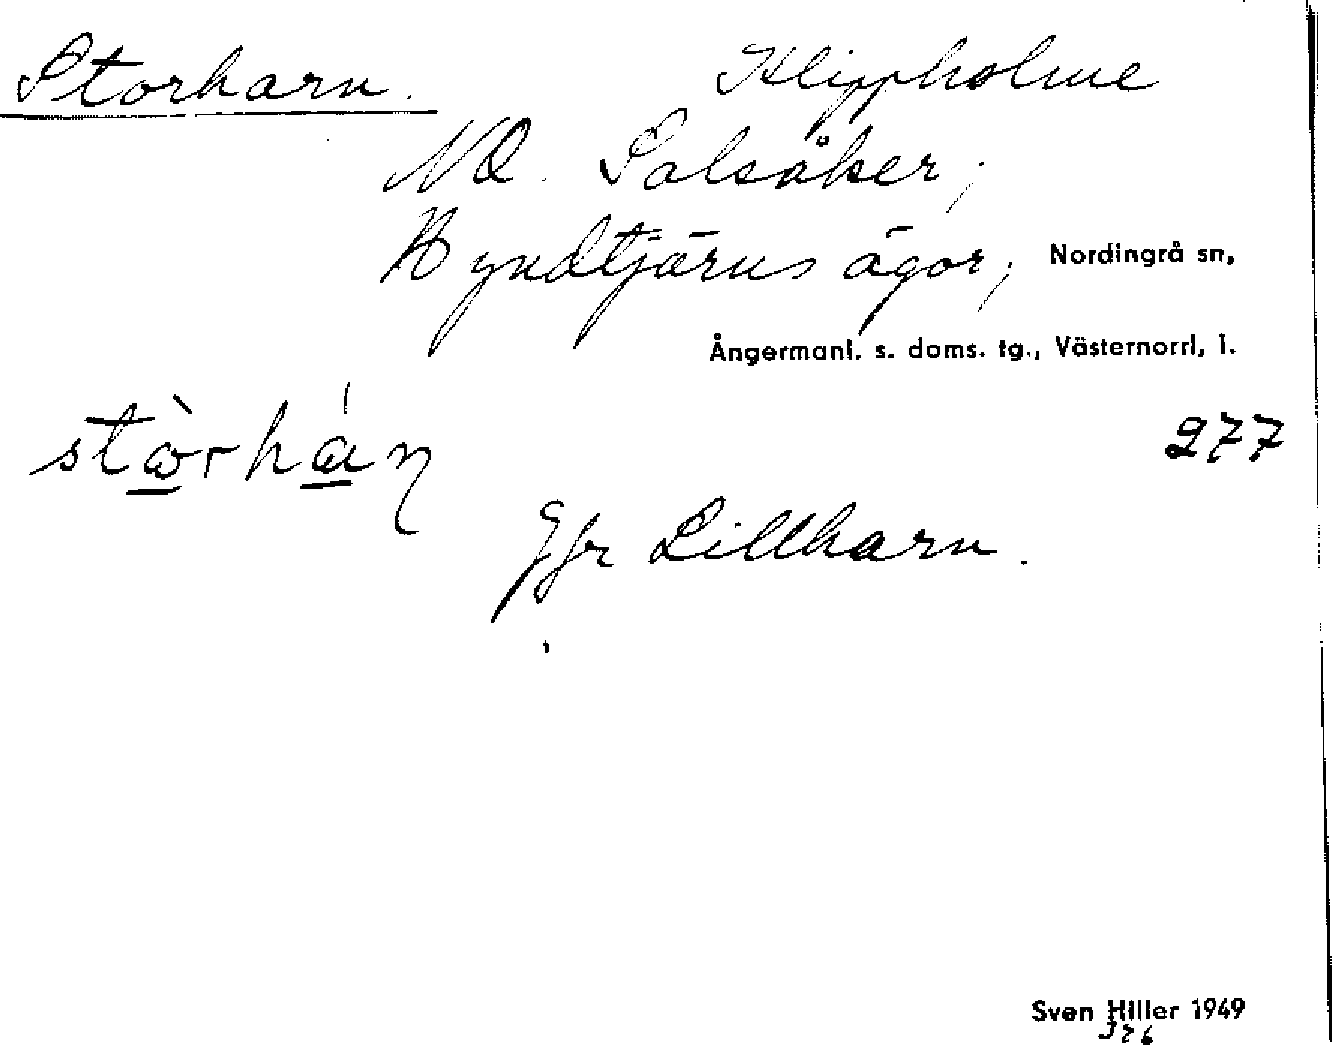 Storharn. Klippholme
NO. Salsåker,
Hyndtjärns ägor, Nordingrå sn,
Ångermanl. s. doms. tg., Västernorrl, l.
277
Jfr Lillharn.
Sven Hiller 1949